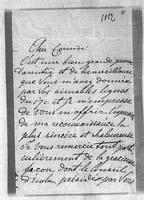 1112
Cher Comité
C'est une bien grande preuve
d'amitié et de bienveillance
que vous m'avez donnée
par vos aimables lignes
du 17 c et je m'empresse
de vous en offrir
de ma reconnaissance la
plus sincère et chaleureuse
Je vous remercie tout parti-
culièrement de la gracieuse
façon dont le Conseil
d'école présidé par vous